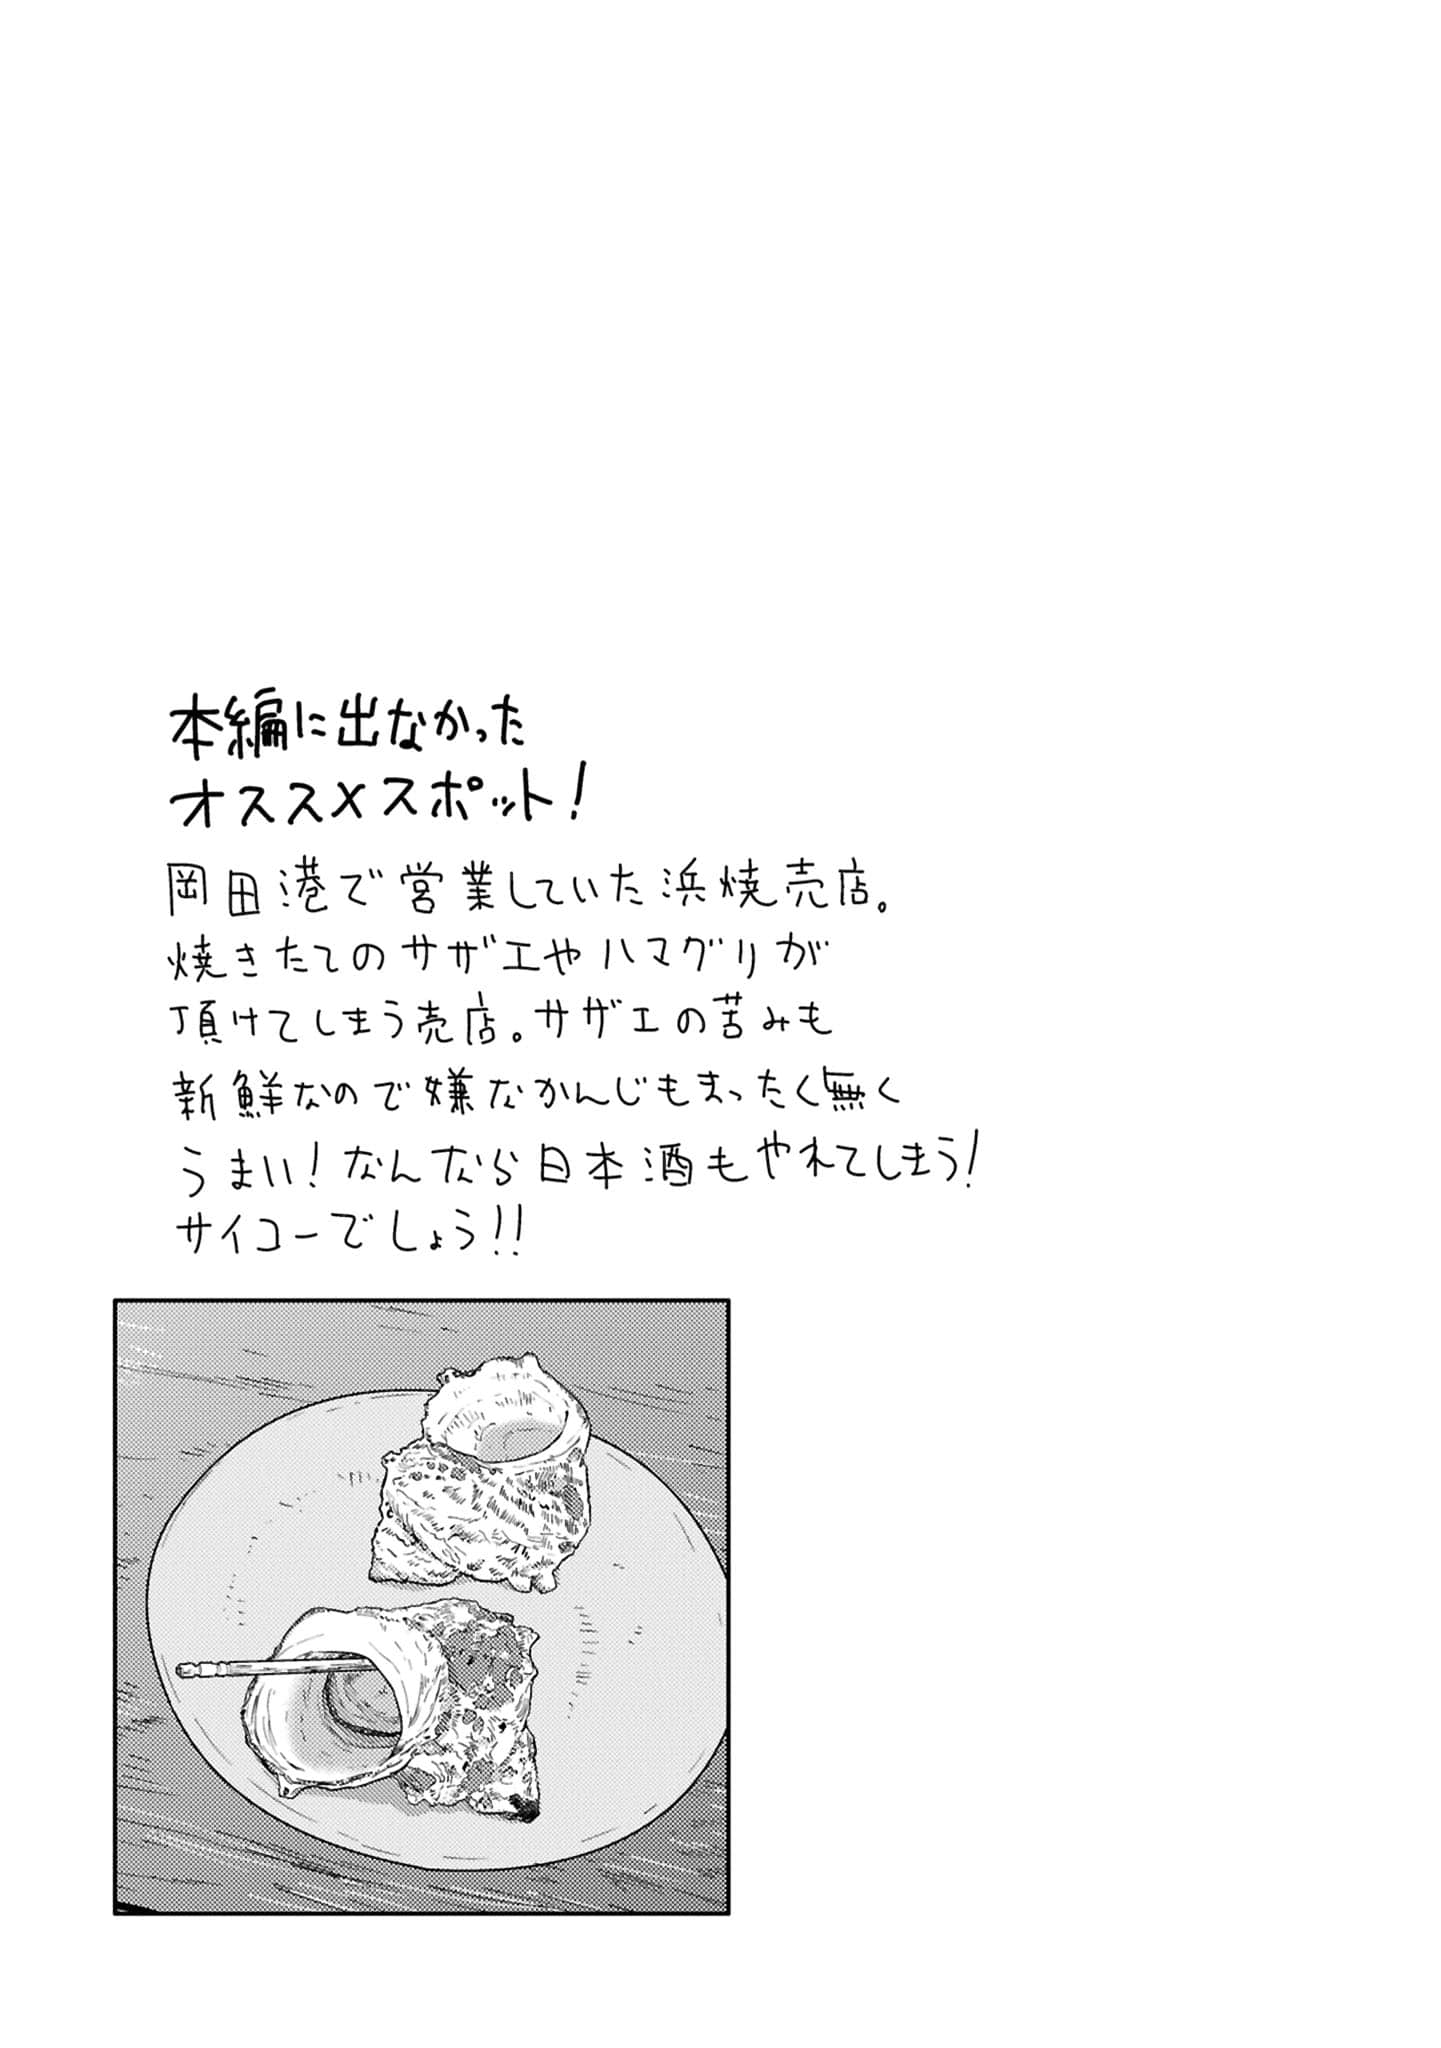 本編に出なかった
オススメスポット!
岡田港で営業していた浜焼売店。
焼きたてのサザエやハマグリが
頂けてしまう売店。サザエの苦みも
新鮮なので嫌なかんじもまったく無く
うまい!なんなら日本酒もやれてしまう!
サイコーでしょう!!